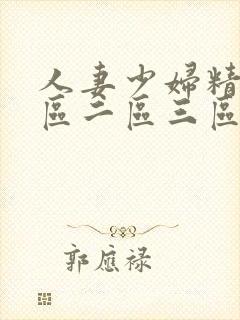 人妻少婦精
區二區三區
郭應祿